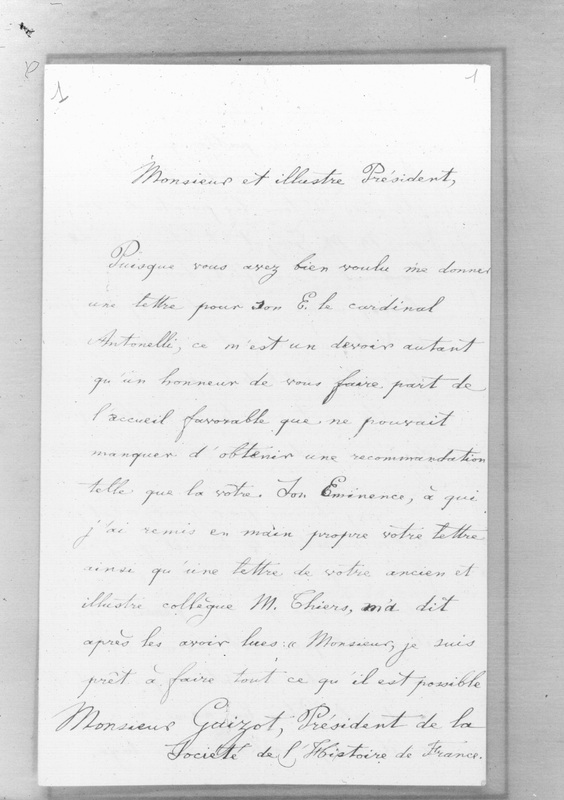 1
1
Monsieur et illustre Président,
Puisque vous avez bien voulu me donner
une lettre pour Son E. le cardinal
Antonelli, ce m'est un devoir autant
qu'un honneur de vous faire part de
l'accueil favorable que ne pouvait
manquer d'obtenir une recommandation
telle que la vôtre. Son Eminence, à qui
j'ai remis en main propre votre lettre
ainsi qu'une lettre de votre ancien et
illustre collègue M. Thiers, m'a dit
après les avoir lues : « Monsieur, je suis
prêt à faire tout ce qu'il est possible
Monsieur Guizot, Président de la
Société de l'Histoire de France.